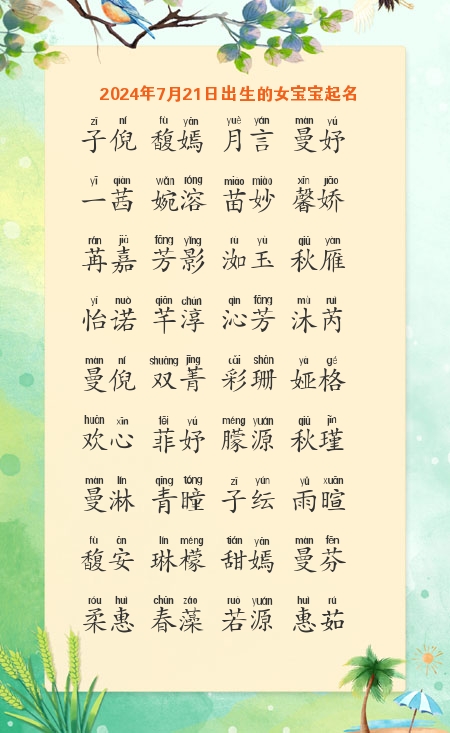 2024年7月21日出生的女宝宝起名
zǐ ní fù yān yuè yán màn yú
子倪 馥嫣 月言 曼妤
yī qiàn wǎn róng miáo miào xīn jiāo
一茜 婉溶 苗妙 馨娇
rǎn jiā fāng yǐng rù yù qiū yàn
苒嘉 芳影 洳玉 秋雁
yí nuò qiān chún qìn fāng mù ruì
怡诺 芊淳 沁芳 沐芮
màn ní shuāng jīng cǎi shān yà gé
曼倪 双菁 彩珊 娅格
huān xīn fēi yú méng yuán qiū jǐn
欢心 菲妤 朦源 秋瑾
màn lín qīng tóng zǐ yún yǔ xuān
曼淋 青瞳 子纭 雨暄
fù ān lín méng tián yān màn fēn
馥安 琳檬 甜嫣 曼芬
róu huì chūn zǎo ruò yuán huì rú
柔惠 春藻 若源 惠茹